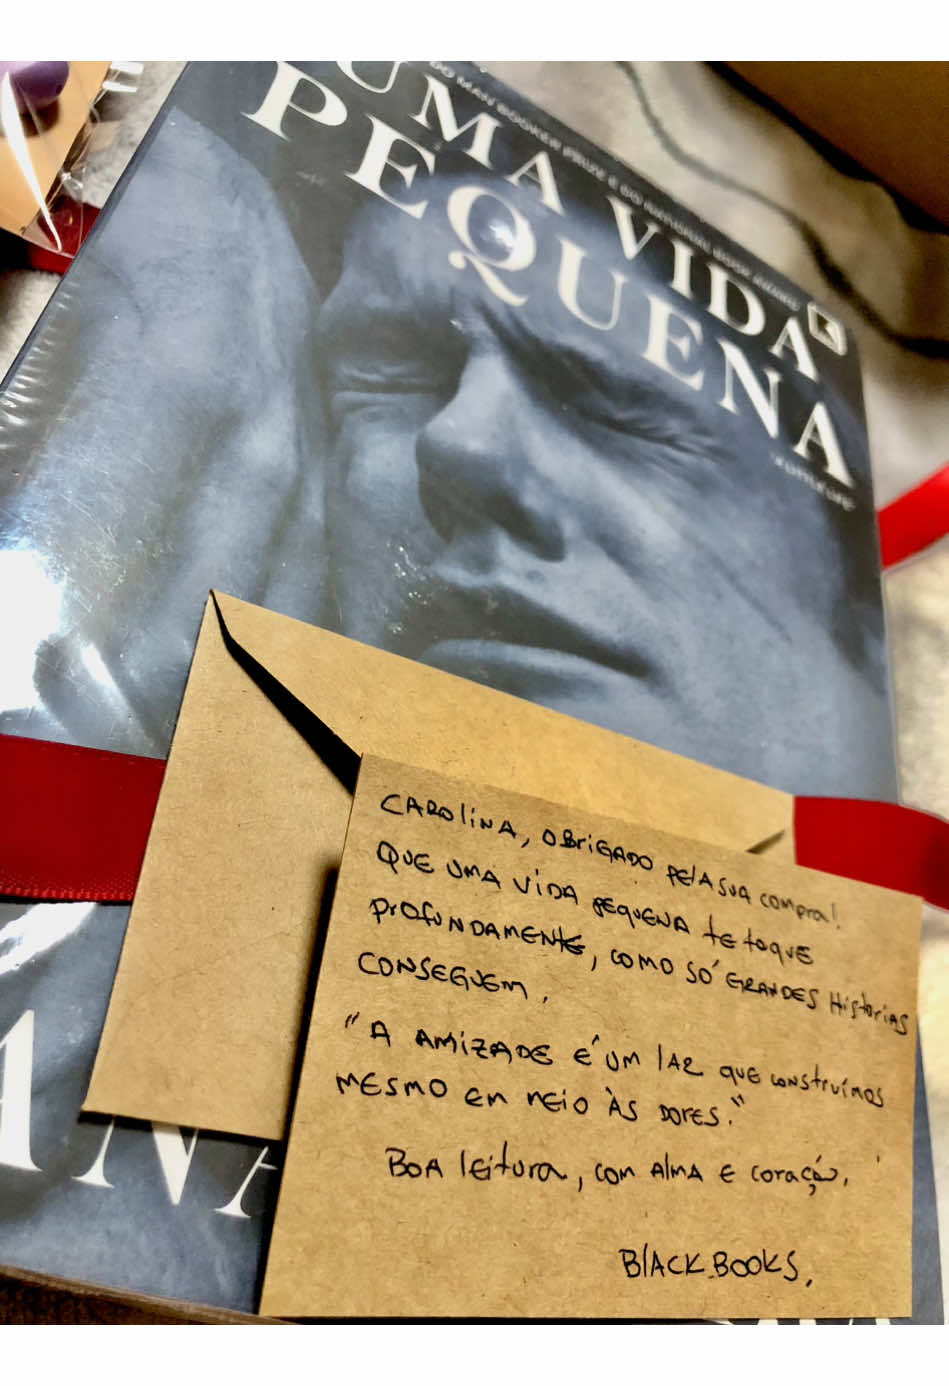 UMA VIDA
DO MAN BOOKER PRIZE E DO NATIONAL BOOK AWARD
PEQUENA
"A LITTLE LIFE"
CAROLINA, OBRIGADO PELA SUA COMPRA!
QUE UMA VIDA PEQUENA TE TOQUE
PROFUNDAMENTE, COMO SÓ GRANDES HISTORIAS
CONSEGUEM.
"A AMIZADE É UM LAR QUE CONSTRUÍMOS
MESMO EM MEIO ÀS DORES."
BOA LEITURA, COM ALMA E CORAÇÃO.
BLACK BOOKS,